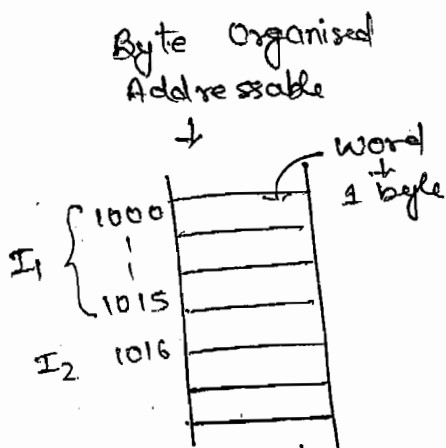 Byte Organised
Addressable
↓
Word
↓
1 byte
I₁ { 1000
1015
I₂ 1016